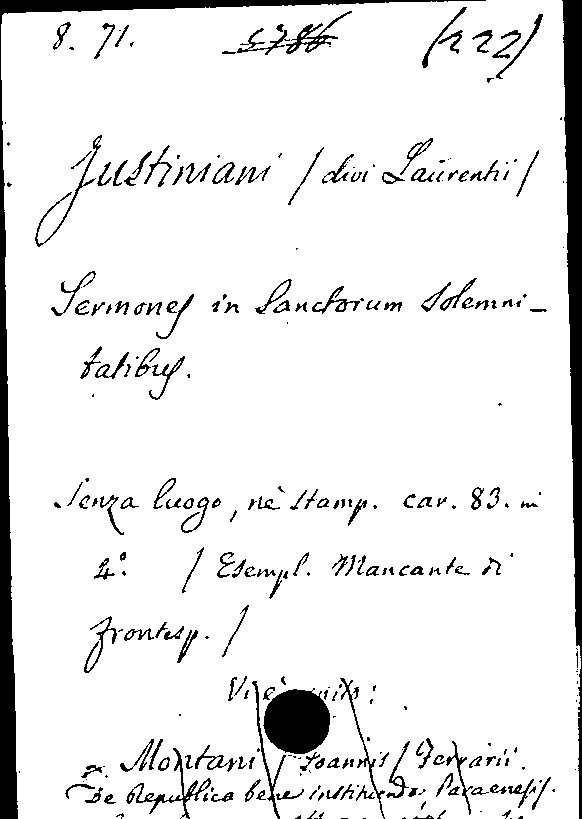 8. 71. 5786 (222)
Justiniani / divi Laurentii /
Sermones in Sanctorum Solemni-
tatibus.
Senza luogo, nè stamp. car. 83. in
4º. / Esempl. Mancante di
frontesp. /
Vi è unito:
Montani / Joannis / Ferrarii.
De Republica bene instituenda, Paraenesis.